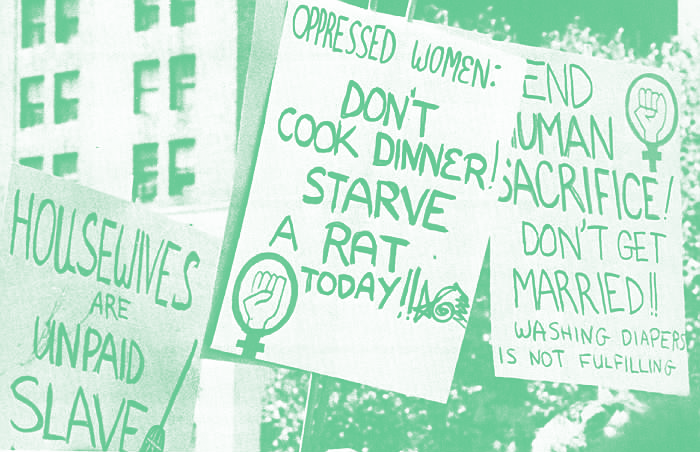 HOUSEWIVES
ARE
UNPAID
SLAVE
OPPRESSED WOMEN:
DON'T
COOK DINNER!
STARVE
A RAT
TODAY!!
END
UMAN
SACRIFICE!
DON'T GET
MARRIED!!
WASHING DIAPERS
IS NOT FULFILLING